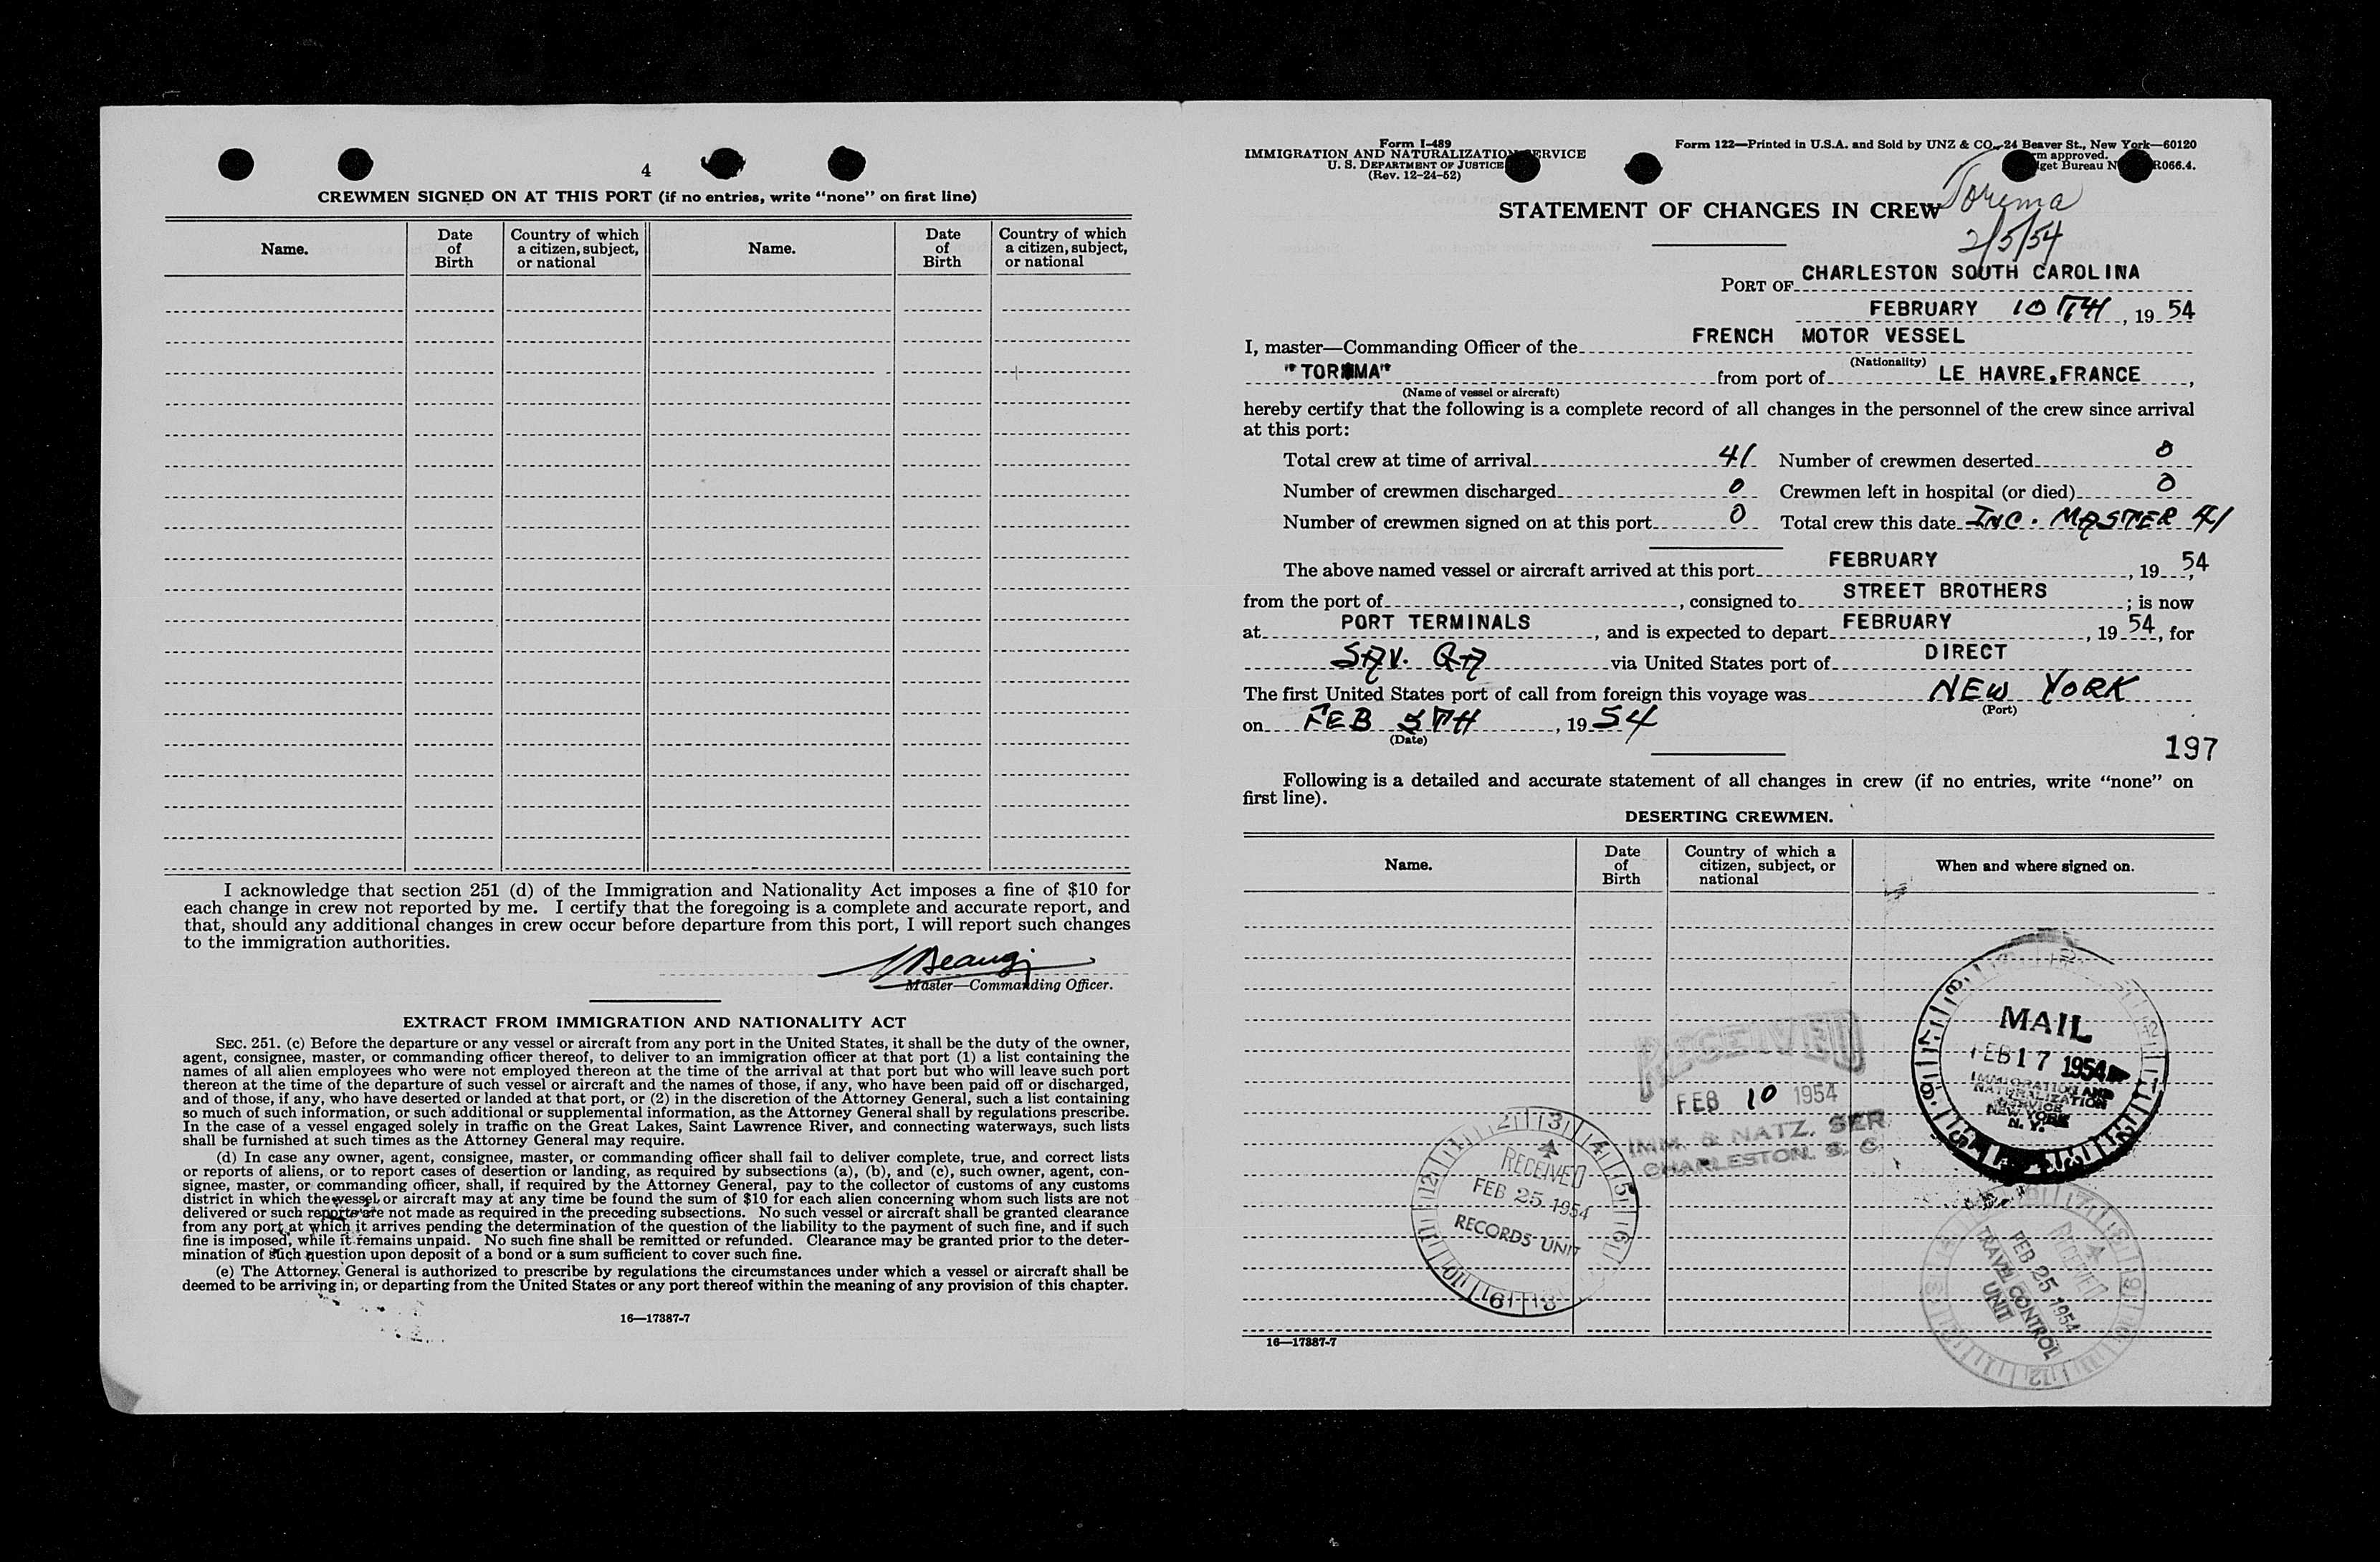 4
CREWMEN SIGNED ON AT THIS PORT (if no entries, write “none” on first line)
Name.
Date of Birth
Country of which a citizen, subject, or national
Name.
Date of Birth
Country of which a citizen, subject, or national
I acknowledge that section 251 (d) of the Immigration and Nationality Act imposes a fine of $10 for
each change in crew not reported by me. I certify that the foregoing is a complete and accurate report, and
that, should any additional changes in crew occur before departure from this port, I will report such changes
to the immigration authorities.
Master—Commanding Officer.
EXTRACT FROM IMMIGRATION AND NATIONALITY ACT
SEC. 251. (c) Before the departure or any vessel or aircraft from any port in the United States, it shall be the duty of the owner,
agent, consignee, master, or commanding officer thereof, to deliver to an immigration officer at that port (1) a list containing the
names of all alien employees who were not employed thereon at the time of the arrival at that port but who will leave such port
thereon at the time of the departure of such vessel or aircraft and the names of those, if any, who have been paid off or discharged,
and of those, if any, who have deserted or landed at that port, or (2) in the discretion of the Attorney General, such a list containing
so much of such information, or such additional or supplemental information, as the Attorney General shall by regulations prescribe.
In the case of a vessel engaged solely in traffic on the Great Lakes, Saint Lawrence River, and connecting waterways, such lists
shall be furnished at such times as the Attorney General may require.
(d) In case any owner, agent, consignee, master, or commanding officer shall fail to deliver complete, true, and correct lists
or reports of aliens, or to report cases of desertion or landing, as required by subsections (a), (b), and (c), such owner, agent, con-
signee, master, or commanding officer, shall, if required by the Attorney General, pay to the collector of customs of any customs
district in which the vessel or aircraft may at any time be found the sum of $10 for each alien concerning whom such lists are not
delivered or such reports are not made as required in the preceding subsections. No such vessel or aircraft shall be granted clearance
from any port at which it arrives pending the determination of the question of the liability to the payment of such fine, and if such
fine is imposed, while it remains unpaid. No such fine shall be remitted or refunded. Clearance may be granted prior to the deter-
mination of such question upon deposit of a bond or a sum sufficient to cover such fine.
(e) The Attorney General is authorized to prescribe by regulations the circumstances under which a vessel or aircraft shall be
deemed to be arriving in, or departing from the United States or any port thereof within the meaning of any provision of this chapter.
16—17387-7
Form I-489
IMMIGRATION AND NATURALIZATION SERVICE
U. S. DEPARTMENT OF JUSTICE
(Rev. 12-24-52)
Form 122—Printed in U.S.A. and Sold by UNZ & CO., 24 Beaver St., New York—60120
approved.
Bureau R066.4.
Torema
2/5/54
STATEMENT OF CHANGES IN CREW
PORT OF CHARLESTON SOUTH CAROLINA
FEBRUARY 10TH, 19 54
I, master—Commanding Officer of the FRENCH MOTOR VESSEL
(Nationality)
"TOREMA" from port of LE HAVRE, FRANCE,
(Name of vessel or aircraft)
hereby certify that the following is a complete record of all changes in the personnel of the crew since arrival
at this port:
Total crew at time of arrival 41 Number of crewmen deserted 0
Number of crewmen discharged 0 Crewmen left in hospital (or died) 0
Number of crewmen signed on at this port 0 Total crew this date INC. MASTER 41
The above named vessel or aircraft arrived at this port FEBRUARY, 19 54,
from the port of , consigned to STREET BROTHERS; is now
at PORT TERMINALS, and is expected to depart FEBRUARY, 19 54, for
SAV. GA via United States port of DIRECT
The first United States port of call from foreign this voyage was NEW YORK
(Port)
on FEB 5TH, 19 54
(Date)
197
Following is a detailed and accurate statement of all changes in crew (if no entries, write “none” on
first line).
DESERTING CREWMEN.
Name.
Date of Birth
Country of which a citizen, subject, or national
When and where signed on.
MAIL
FEB 17 1954
IMMIGRATION AND
NATURALIZATION
SERVICE
NEW YORK
N. Y.
RECEIVED
FEB 10 1954
IMM. & NATZ. SER
CHARLESTON. S. C.
RECEIVED
FEB 25 1954
RECORDS UNIT
RECEIVED
FEB 25 1954
TRAVEL CONTROL
UNIT
16—17387-7